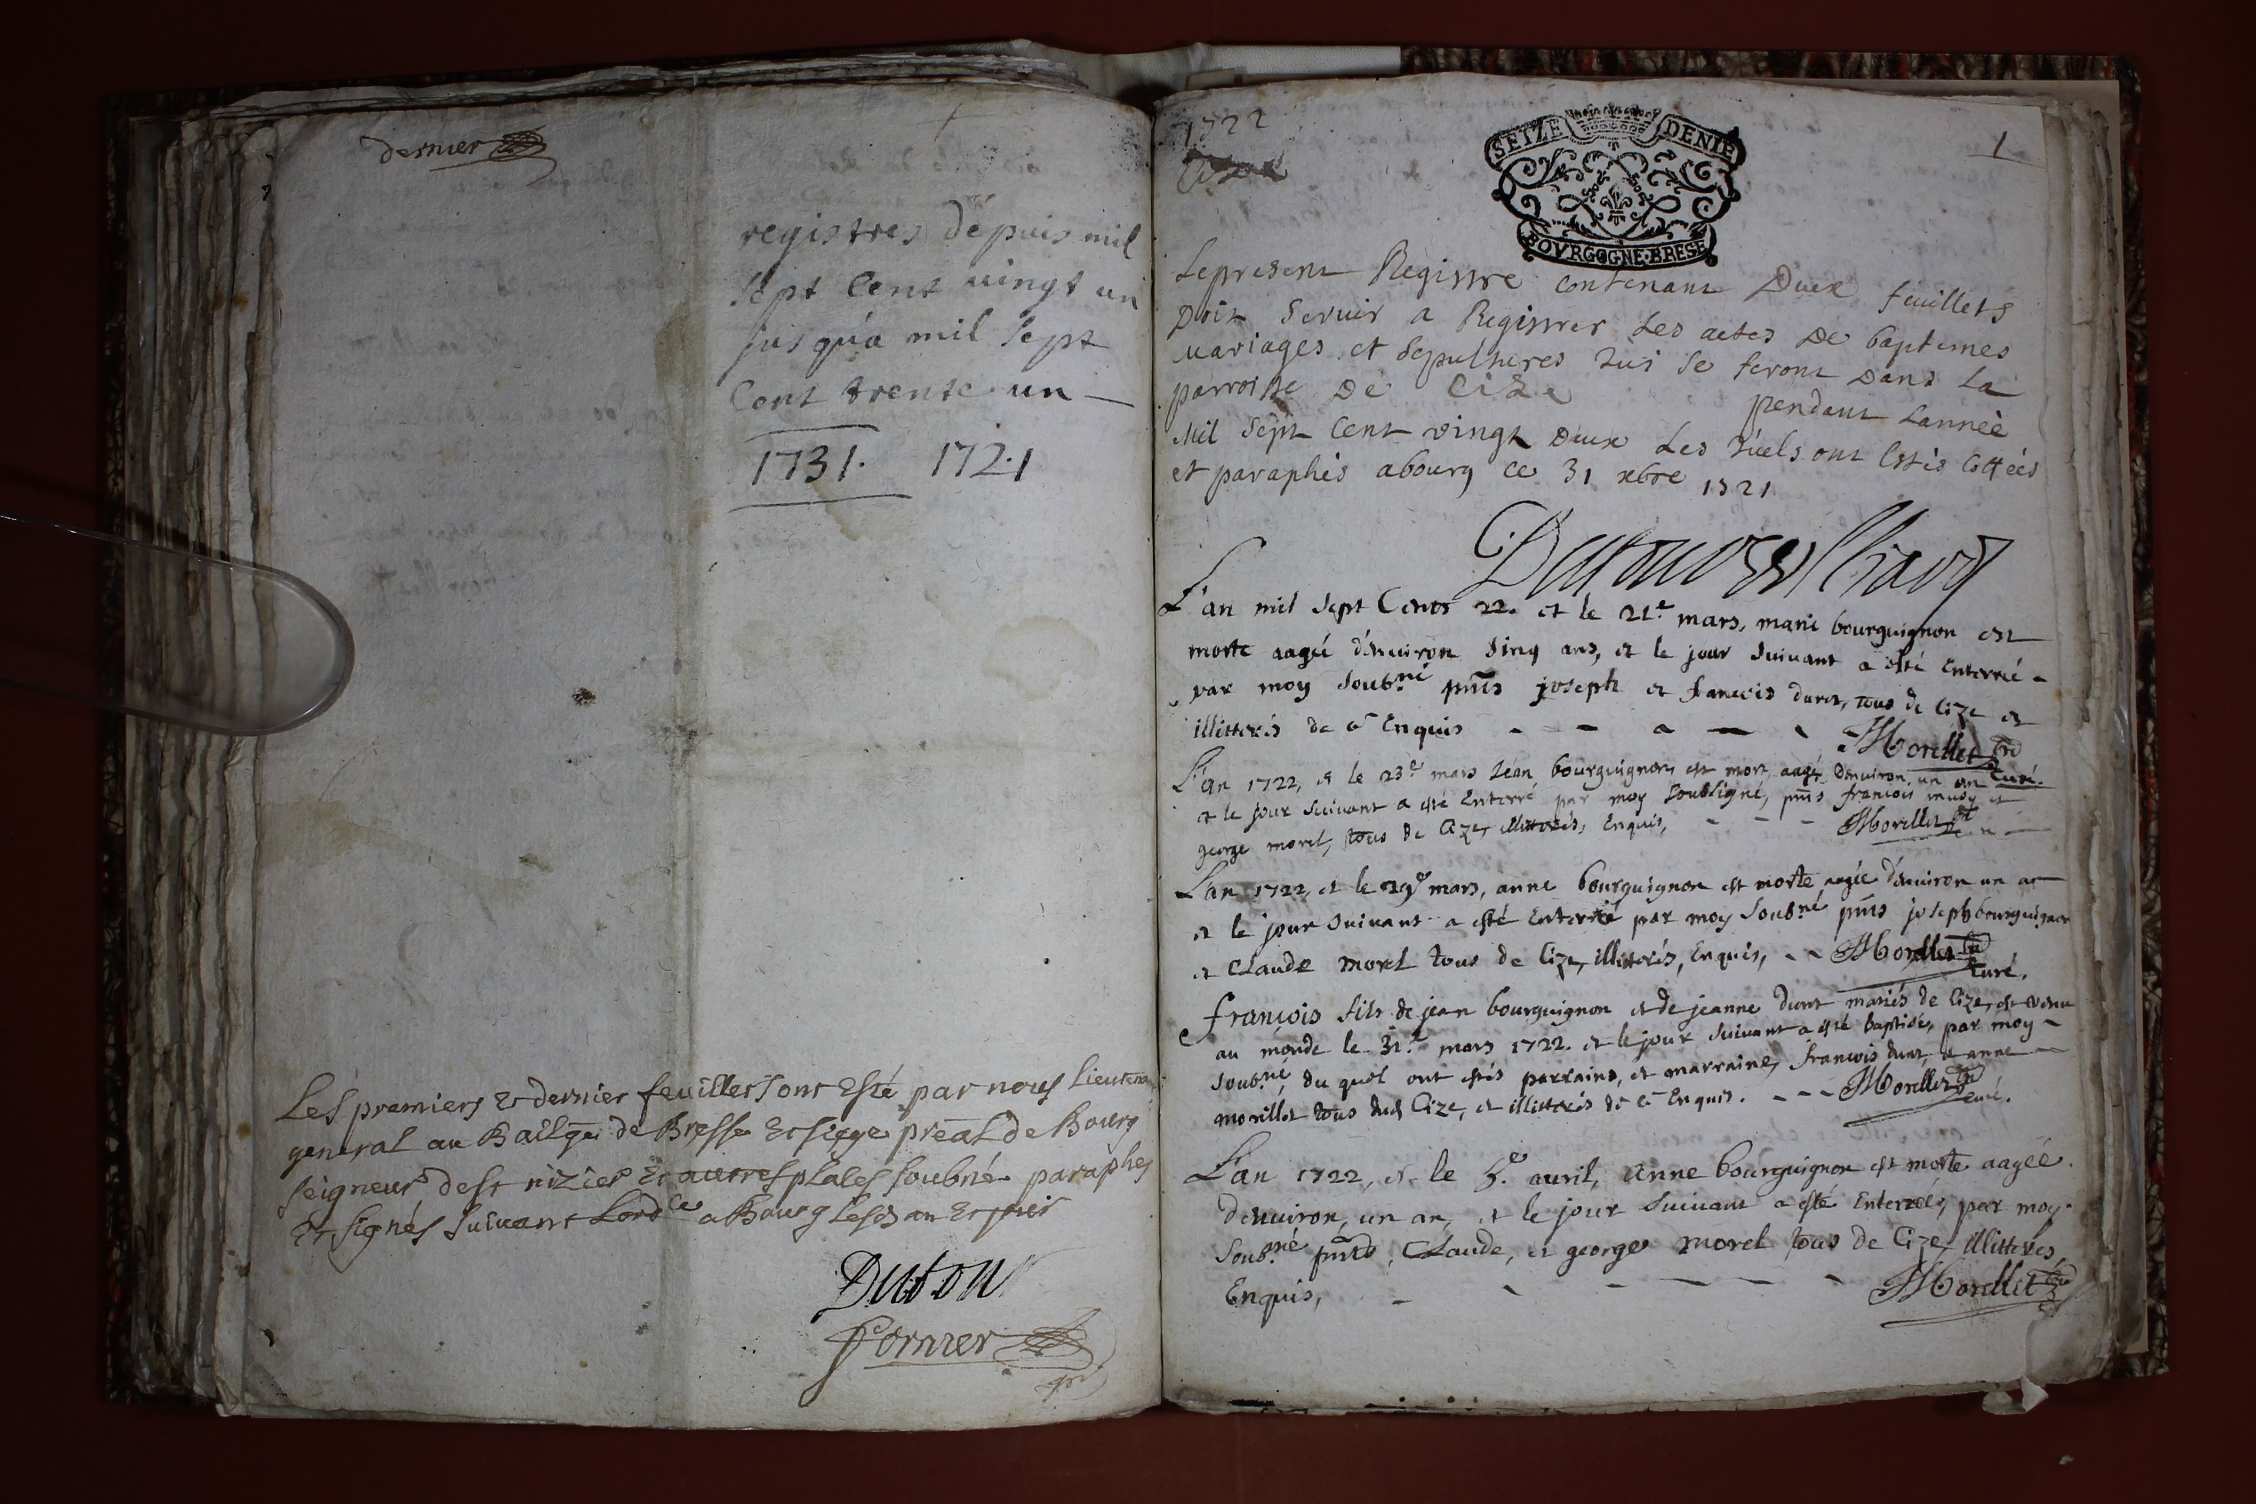 dernier
registres depuis mil
sept Cent vingt un
jusqu'a mil sept
Cent trente un
1731. 1721
Les premiers et dernier feuillet sont esté par nous Lieutenant
general au Bailge de Bresse et siege preal de Bourg
seigneur de st nizier et autres places soubné paraphes
et signés suivant Lordce a Bourg
Dutour
fornier
1722
Cize
1
SEIZE DENIE
BOVRGOGNE·BRESE
Lepresent Registre contenant Deux feuillets
Doit servir a Registrer Les actes De baptemes
Mariages et sepultures qui se feront Dans La
parroisse De Cize pendant Lannée
Mil Sept Cent vingt Deux Les quels ont Estés Cottées
et paraphés a bourg ce 31 xbre 1721
Dutour
L'an mil sept Cents 22. et le 21e mars, marie bourguignon est
morte aagée d'enuiron sinq ans, et le jour suivant a esté Enterrée
par moy soubné pnts joseph et francois duret, tous de Cize et
illitterés de ce Enquis
Morellet curé.
L'an 1722, et le 23e mars Jean bourguignon est mort aagé Denuiron un an
et le jour suivant a esté Enterré par moy soubsigné, pnts francois et
george morel, tous de Cize, illitterés, Enquis, Morellet
L'an 1722, et le 29e mars, anne bourguignon est morte aagée d'enuiron un an
et le jour suivant a esté Enterrée par moy soubné pnts joseph bourguignon
et Claude morel tous de Cize, illitterés, Enquis, Morellet curé.
francois fils de jean bourguignon et de jeanne mariés de Cize, est venu
au monde le 31e mars 1722. et le jour suivant a esté baptisé, par moy
soubné, du quel ont estés parrains, et marraine, francois et anne
morillot tous dud Cize, et illitterés de ce Enquis. Morellet curé.
L'an 1722, et le 5e auril, Anne bourguignon est morte aagée
denuiron, un an, et le jour suivant a esté Enterrée, par moy
soubné pnts, Claude, et george morel tous de Cize, illitterés,
Enquis, Morellet